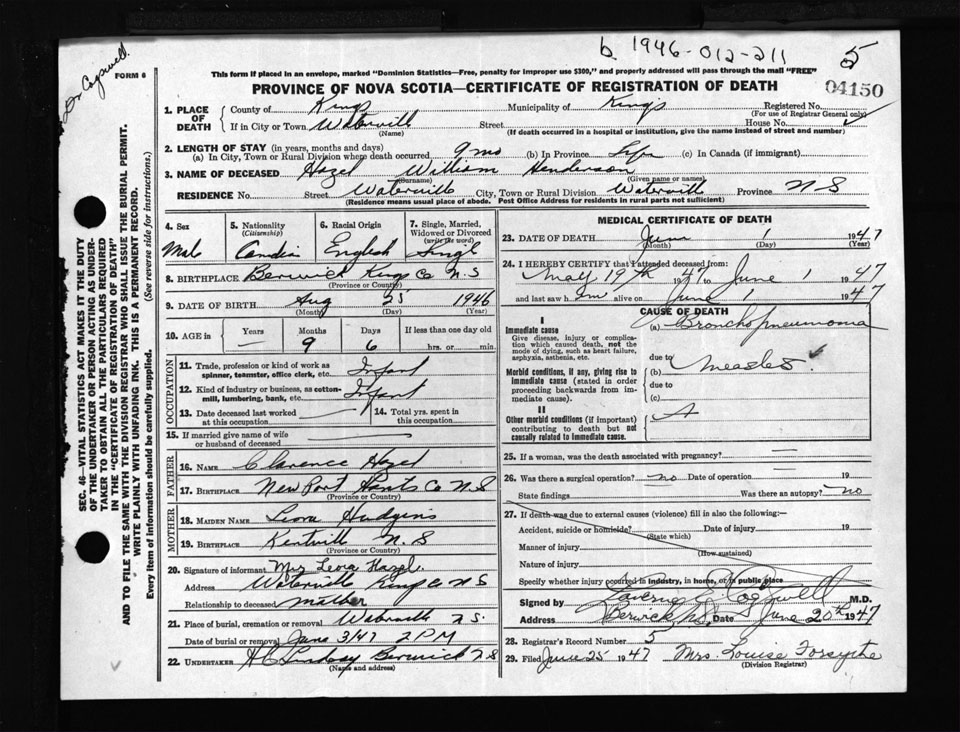 b 1946-012-211
5
Dr Cogswell.
FORM 6
04150
This form if placed in an envelope, marked "Dominion Statistics—Free, penalty for improper use $300," and properly addressed will pass through the mail "FREE"
PROVINCE OF NOVA SCOTIA—CERTIFICATE OF REGISTRATION OF DEATH
SEC. 46—VITAL STATISTICS ACT MAKES IT THE DUTY
OF THE UNDERTAKER OR PERSON ACTING AS UNDER-
TAKER TO OBTAIN ALL THE PARTICULARS REQUIRED
IN THE "CERTIFICATE OF REGISTRATION OF DEATH"
AND TO FILE THE SAME WITH THE DIVISION REGISTRAR WHO SHALL ISSUE THE BURIAL PERMIT.
WRITE PLAINLY WITH UNFADING INK. THIS IS A PERMANENT RECORD.
Every item of information should be carefully supplied. (See reverse side for instructions.)
1. PLACE OF DEATH
County of Kings Municipality of King's Registered No.
(For use of Registrar General only)
If in City or Town Waterville Street House No.
(Name) (If death occurred in a hospital or institution, give the name instead of street and number)
2. LENGTH OF STAY (in years, months and days)
(a) In City, Town or Rural Division where death occurred 9 mo (b) In Province Life (c) In Canada (if immigrant)
3. NAME OF DECEASED Hazel William Henderson
(Surname) (Given name or names)
RESIDENCE No. Street Waterville City, Town or Rural Division Waterville Province N S
(Residence means usual place of abode. Post Office Address for residents in rural parts not sufficient)
4. Sex
Male
5. Nationality
(Citizenship)
6. Racial Origin
English
7. Single, Married, Widowed or Divorced
(write the word)
Singl
8. BIRTHPLACE Berwick Kings Co N.S
(Province or Country)
9. DATE OF BIRTH Aug 25 1946
(Month) (Day) (Year)
10. AGE in Years Months Days If less than one day old
— 9 6 hrs. or min.
OCCUPATION
11. Trade, profession or kind of work as
spinner, teamster, office clerk, etc. Infant
12. Kind of industry or business, as cotton-
mill, lumbering, bank, etc. Infant
13. Date deceased last worked
at this occupation
14. Total yrs. spent in
this occupation
15. If married give name of wife
or husband of deceased
FATHER
16. NAME Clarence Hazel
17. BIRTHPLACE New Port Hants Co N.S
(Province or Country)
MOTHER
18. MAIDEN NAME Leora Hudgins
19. BIRTHPLACE Kentville N.S
(Province or Country)
20. Signature of informant Mrs Leora Hazel.
Address Waterville N S
Relationship to deceased mother
21. Place of burial, cremation or removal Waterville N.S.
Date of burial or removal June 3/47 2 PM
22. UNDERTAKER H C Lindsay Berwick N S
(Name and address)
MEDICAL CERTIFICATE OF DEATH
23. DATE OF DEATH June 1 1947
(Month) (Day) (Year)
24. I HEREBY CERTIFY that I attended deceased from:
May 19th 1947 to June 1 1947
and last saw him alive on June 1 1947
CAUSE OF DEATH
I
Immediate cause
Give disease, injury or complica-
tion which caused death, not the
mode of dying, such as heart failure,
asphyxia, asthenia, etc.
(a) Bronchopneumonia
due to
Morbid conditions, if any, giving rise to
immediate cause (stated in order
proceeding backwards from im-
mediate cause).
(b) Measles.
due to
(c)
II
Other morbid conditions (if important)
contributing to death but not
causally related to immediate cause.
25. If a woman, was the death associated with pregnancy?
26. Was there a surgical operation? no Date of operation 19
State findings Was there an autopsy? no
27. If death was due to external causes (violence) fill in also the following:—
Accident, suicide or homicide? Date of injury 19
(State which)
Manner of injury
(How sustained)
Nature of injury
Specify whether injury occurred in industry, in home, or in public place
Signed by Laverne E Cogswell M.D.
Address Berwick N.S. Date June 20th 1947
28. Registrar's Record Number 5
29. Filed June 25 1947 Mrs. Louise Forsythe
(Division Registrar)